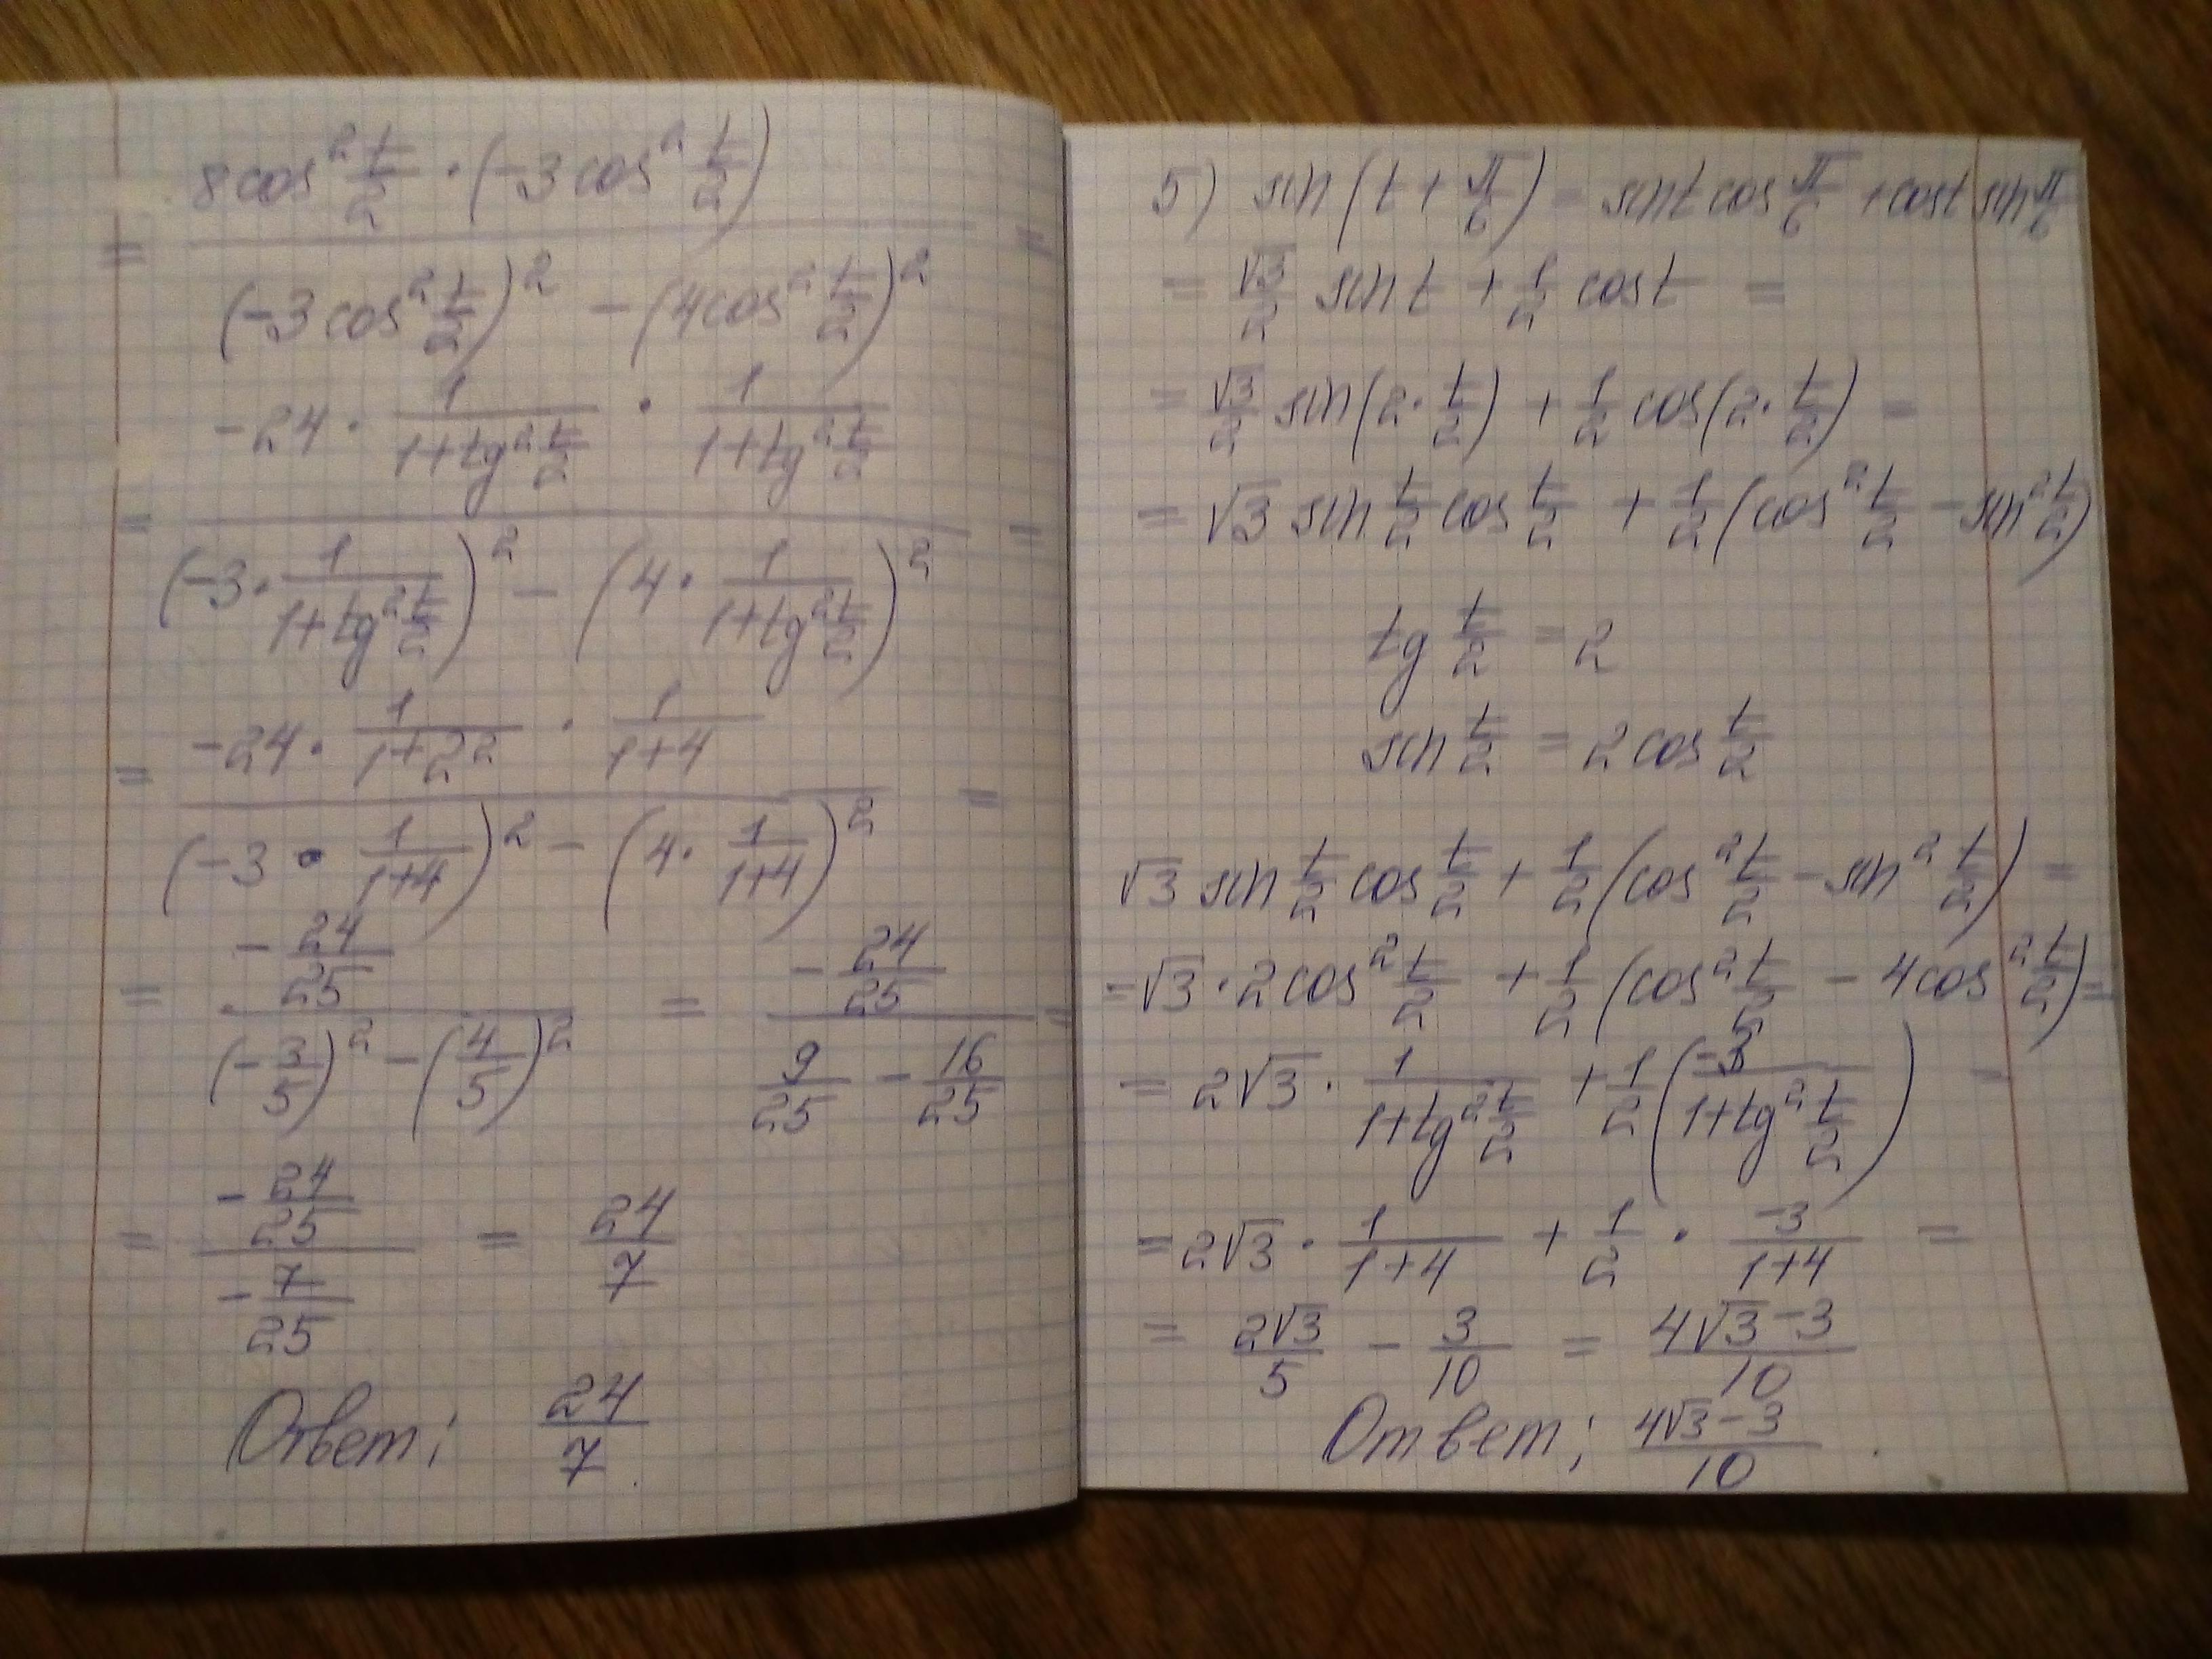 = \frac{8cos^2 \frac{t}{2} \cdot (-3cos^2 \frac{t}{2})}{(-3cos^2 \frac{t}{2})^2 - (4cos^2 \frac{t}{2})^2} =
= \frac{-24 \cdot \frac{1}{1+tg^2 \frac{t}{2}} \cdot \frac{1}{1+tg^2 \frac{t}{2}}}{(-3 \cdot \frac{1}{1+tg^2 \frac{t}{2}})^2 - (4 \cdot \frac{1}{1+tg^2 \frac{t}{2}})^2} =
= \frac{-24 \cdot \frac{1}{1+2^2} \cdot \frac{1}{1+4}}{(-3 \cdot \frac{1}{1+4})^2 - (4 \cdot \frac{1}{1+4})^2} =
= \frac{-\frac{24}{25}}{(-\frac{3}{5})^2 - (\frac{4}{5})^2} = \frac{-\frac{24}{25}}{\frac{9}{25} - \frac{16}{25}} =
= \frac{-\frac{24}{25}}{-\frac{7}{25}} = \frac{24}{7}
Ответ: \frac{24}{7}.
5) sin(t + \frac{π}{6}) = sint cos\frac{π}{6} + cost sin\frac{π}{6}
= \frac{√3}{2} sin t + \frac{1}{2} cost =
= \frac{√3}{2} sin(2 \cdot \frac{t}{2}) + \frac{1}{2} cos(2 \cdot \frac{t}{2}) =
= √3 sin \frac{t}{2} cos \frac{t}{2} + \frac{1}{2}(cos^2 \frac{t}{2} - sin^2 \frac{t}{2})
tg \frac{t}{2} = 2
sin \frac{t}{2} = 2cos \frac{t}{2}
√3 sin \frac{t}{2} cos \frac{t}{2} + \frac{1}{2}(cos^2 \frac{t}{2} - sin^2 \frac{t}{2}) =
= √3 \cdot 2cos^2 \frac{t}{2} + \frac{1}{2}(cos^2 \frac{t}{2} - 4cos^2 \frac{t}{2}) =
= 2√3 \cdot \frac{1}{1+tg^2 \frac{t}{2}} + \frac{1}{2}(\frac{-3}{1+tg^2 \frac{t}{2}}) =
= 2√3 \cdot \frac{1}{1+4} + \frac{1}{2} \cdot \frac{-3}{1+4} =
= \frac{2√3}{5} - \frac{3}{10} = \frac{4√3-3}{10}
Ответ: \frac{4√3-3}{10}.